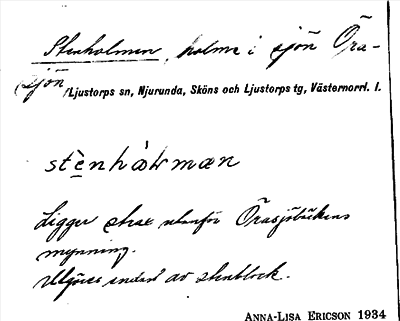 Stenholmen, holme i sjön Öra-
sjön /Ljustorps sn, Njurunda, Sköns och Ljustorps tg, Västernorrl. l.
Ligger strax utanför Örasjöbäckens
mynning.
Utgöres endast av stenblock.
ANNA-LISA ERICSON 1934